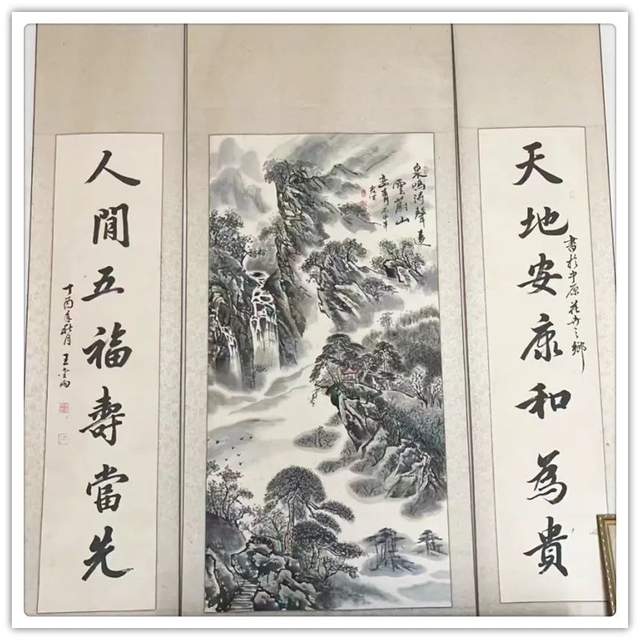 天地安康和為貴
書於中原花女之鄉
泉鳴清聲遠
雲前山
人間五福壽當先
丁酉年秋月